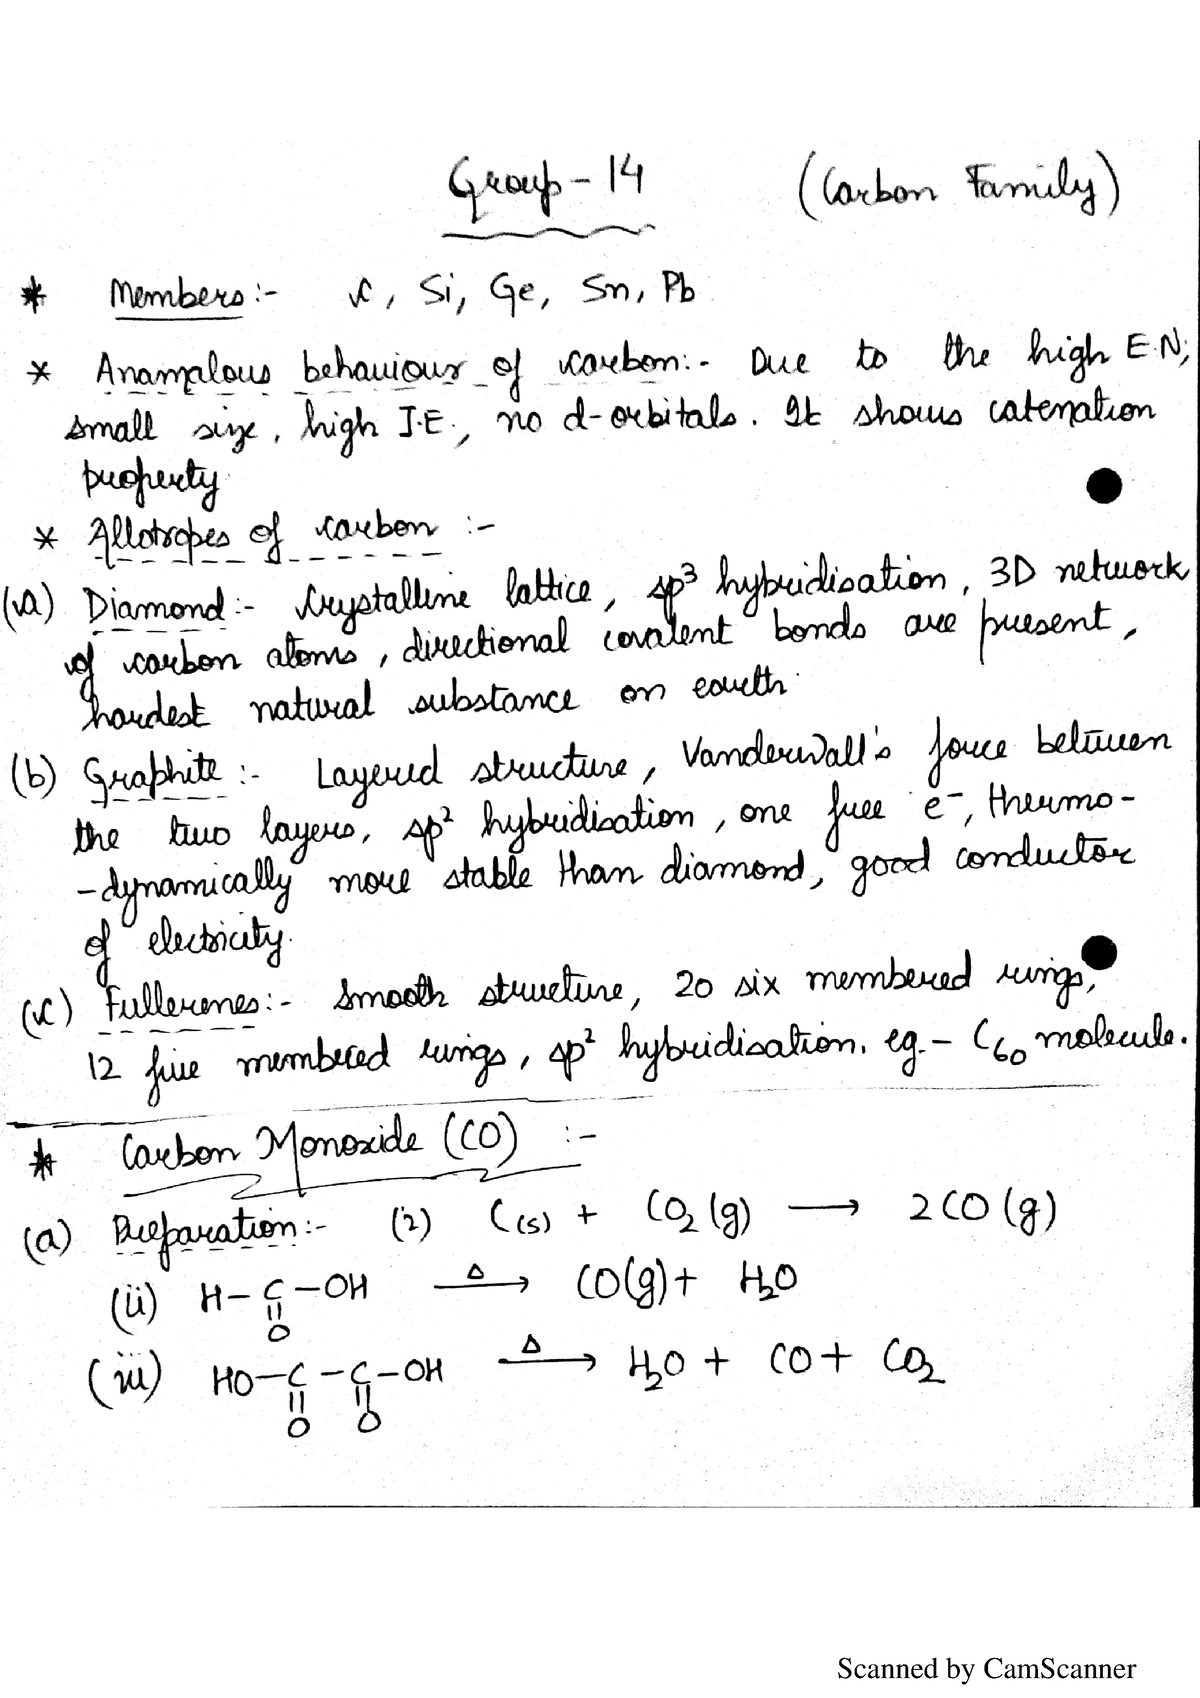 Group - 14 (Carbon Family)
* Members :- C, Si, Ge, Sn, Pb
* Anamalous behaviour of carbon :- Due to the high E.N,
small size, high I.E., no d-orbitals. It shows catenation
property.
* Allotropes of carbon :-
(a) Diamond :- Crystalline lattice, sp³ hybridisation, 3D network
of carbon atoms, directional covalent bonds are present,
hardest natural substance on earth.
(b) Graphite :- Layered structure, Vanderwall's force between
the two layers, sp² hybridisation, one free e⁻, thermo-
-dynamically more stable than diamond, good conductor
of electricity.
(c) Fullerenes :- Smooth structure, 20 six membered rings,
12 five membered rings, sp² hybridisation. eg. - C₆₀ molecule.
* Carbon Monoxide (CO) :-
(a) Preparation :- (i) C(s) + CO₂ (g) ⟶ 2CO (g)
(ii) H-C-OH Δ⟶ CO(g) + H₂O
O
(iii) HO-C-C-OH Δ⟶ H₂O + CO + CO₂
O O
Scanned by CamScanner